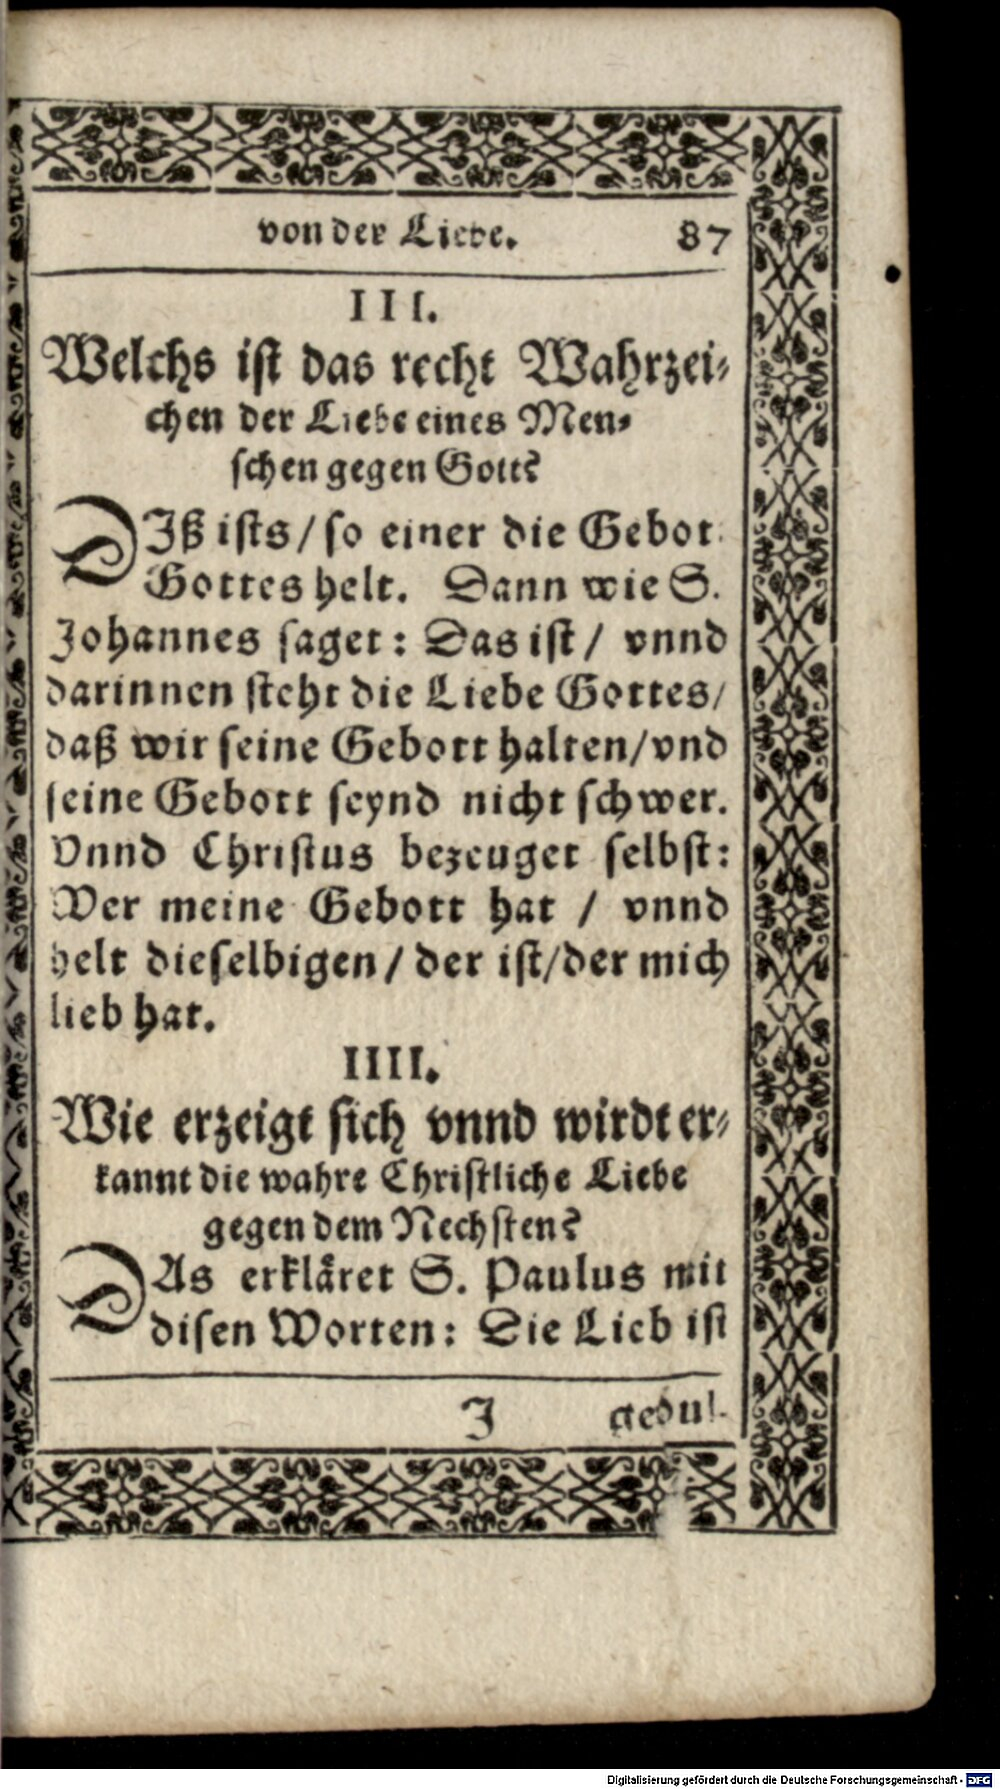 von der Liebe. 87
III.
Welchs ist das recht Wahrzei-
chen der Liebe eines Men-
schen gegen Gott?
DIß ists / so einer die Gebot
Gottes helt. Dann wie S.
Johannes saget: Das ist / vnnd
darinnen steht die Liebe Gottes /
daß wir seine Gebott halten / vnd
seine Gebott seynd nicht schwer.
Vnnd Christus bezeuget selbst:
Wer meine Gebott hat / vnnd
helt dieselbigen / der ist / der mich
lieb hat.
IIII.
Wie erzeigt sich vnnd wirdt er-
kannt die wahre Christliche Liebe
gegen dem Nechsten?
DAs erkläret S. Paulus mit
disen Worten: Die Lieb ist
J gedul-
Digitalisierung gefördert durch die Deutsche Forschungsgemeinschaft - DFG